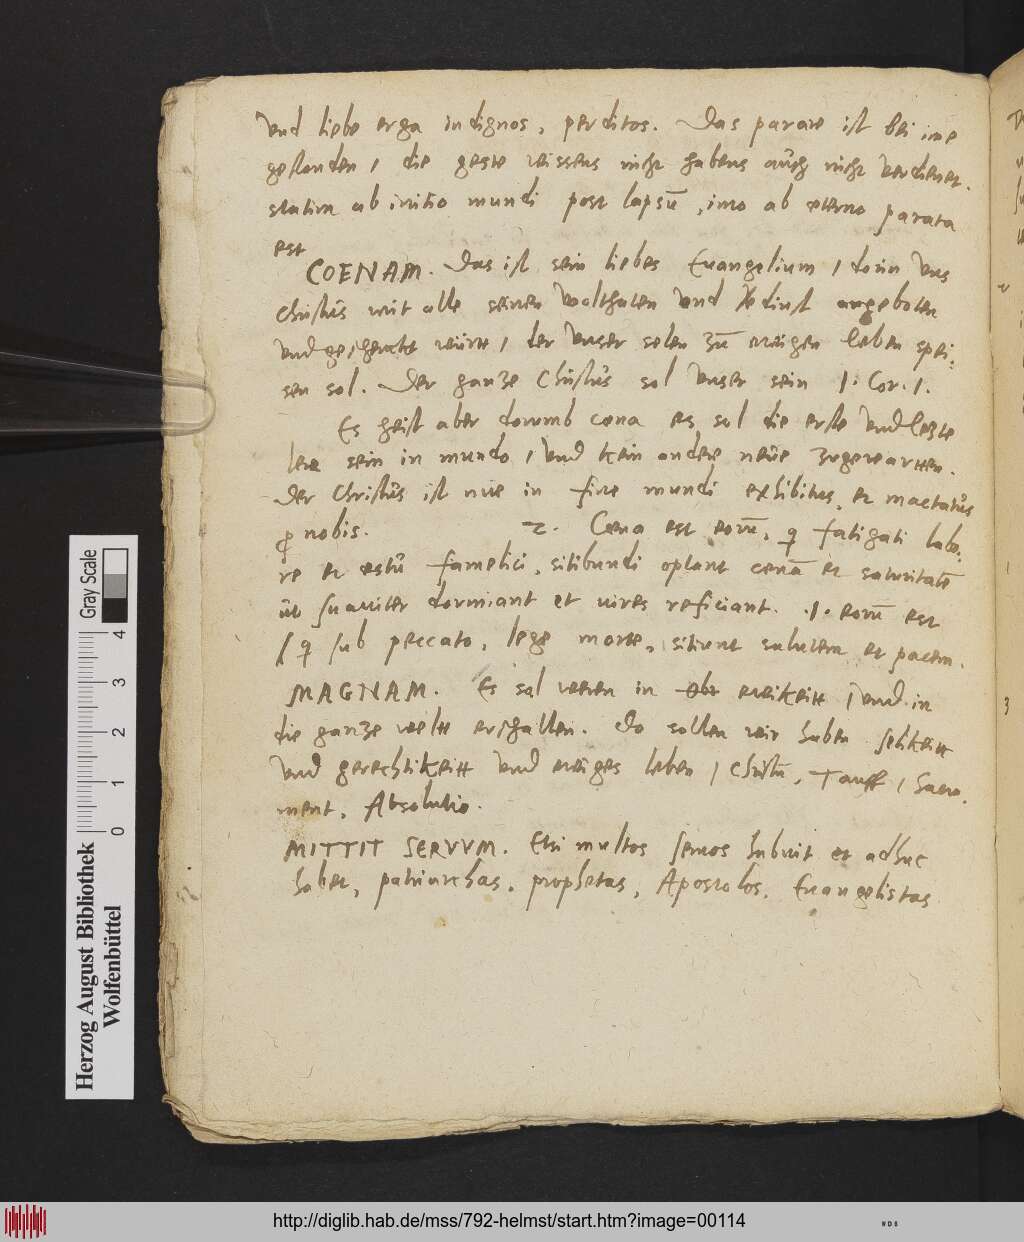 und liebe erga indignos, perditos. Das parare ist bei ime
gestanden / die geste wissens nicht habens auch nicht verdienet.
statim ab initio mundi post lapsū, imo ab eterno parata
est
COENAM. Das ist sein liebes Euangelium / dorin uns
Christus mit alle seinen wolthaten und angeboten
und geschenckt württ / der unser selen zu ewigen leben spei-
sen sol. Der ganze Christus sol unser sein 1. Cor. 1.
Es heist aber dorumb cœna es sol die erste und letzte
lere sein in mundo / und kein andere neue zugewartten.
Der Christus ist nue in fine mundi exhibitus et mactatus
ꝓ nobis. 2. Cœna est eorū, q fatigati labo-
re et estu famelici, sitibundi optant cenā et saturitatē
ut suauiter dormiant et uires reficiant. .1. eorū est
q sub peccato, lege morte, sitiunt salutem et pacem.
MAGNAM. Es sal weren in ewikeitt / und in
die ganze weltt erschallen. Do sollen wir haben selikeitt
und gerechtikeitt und ewiges leben / Christū, Tauff / Sacra-
ment, Absolutio.
MITTIT SERVVM. Etsi multos seruos habuit et adhuc
habet, patriarchas, prophetas, Apostolos, Euangelistas
Gray Scale
0 1 2 3 4
Herzog August Bibliothek
Wolfenbüttel
http://diglib.hab.de/mss/792-helmst/start.htm?image=00114